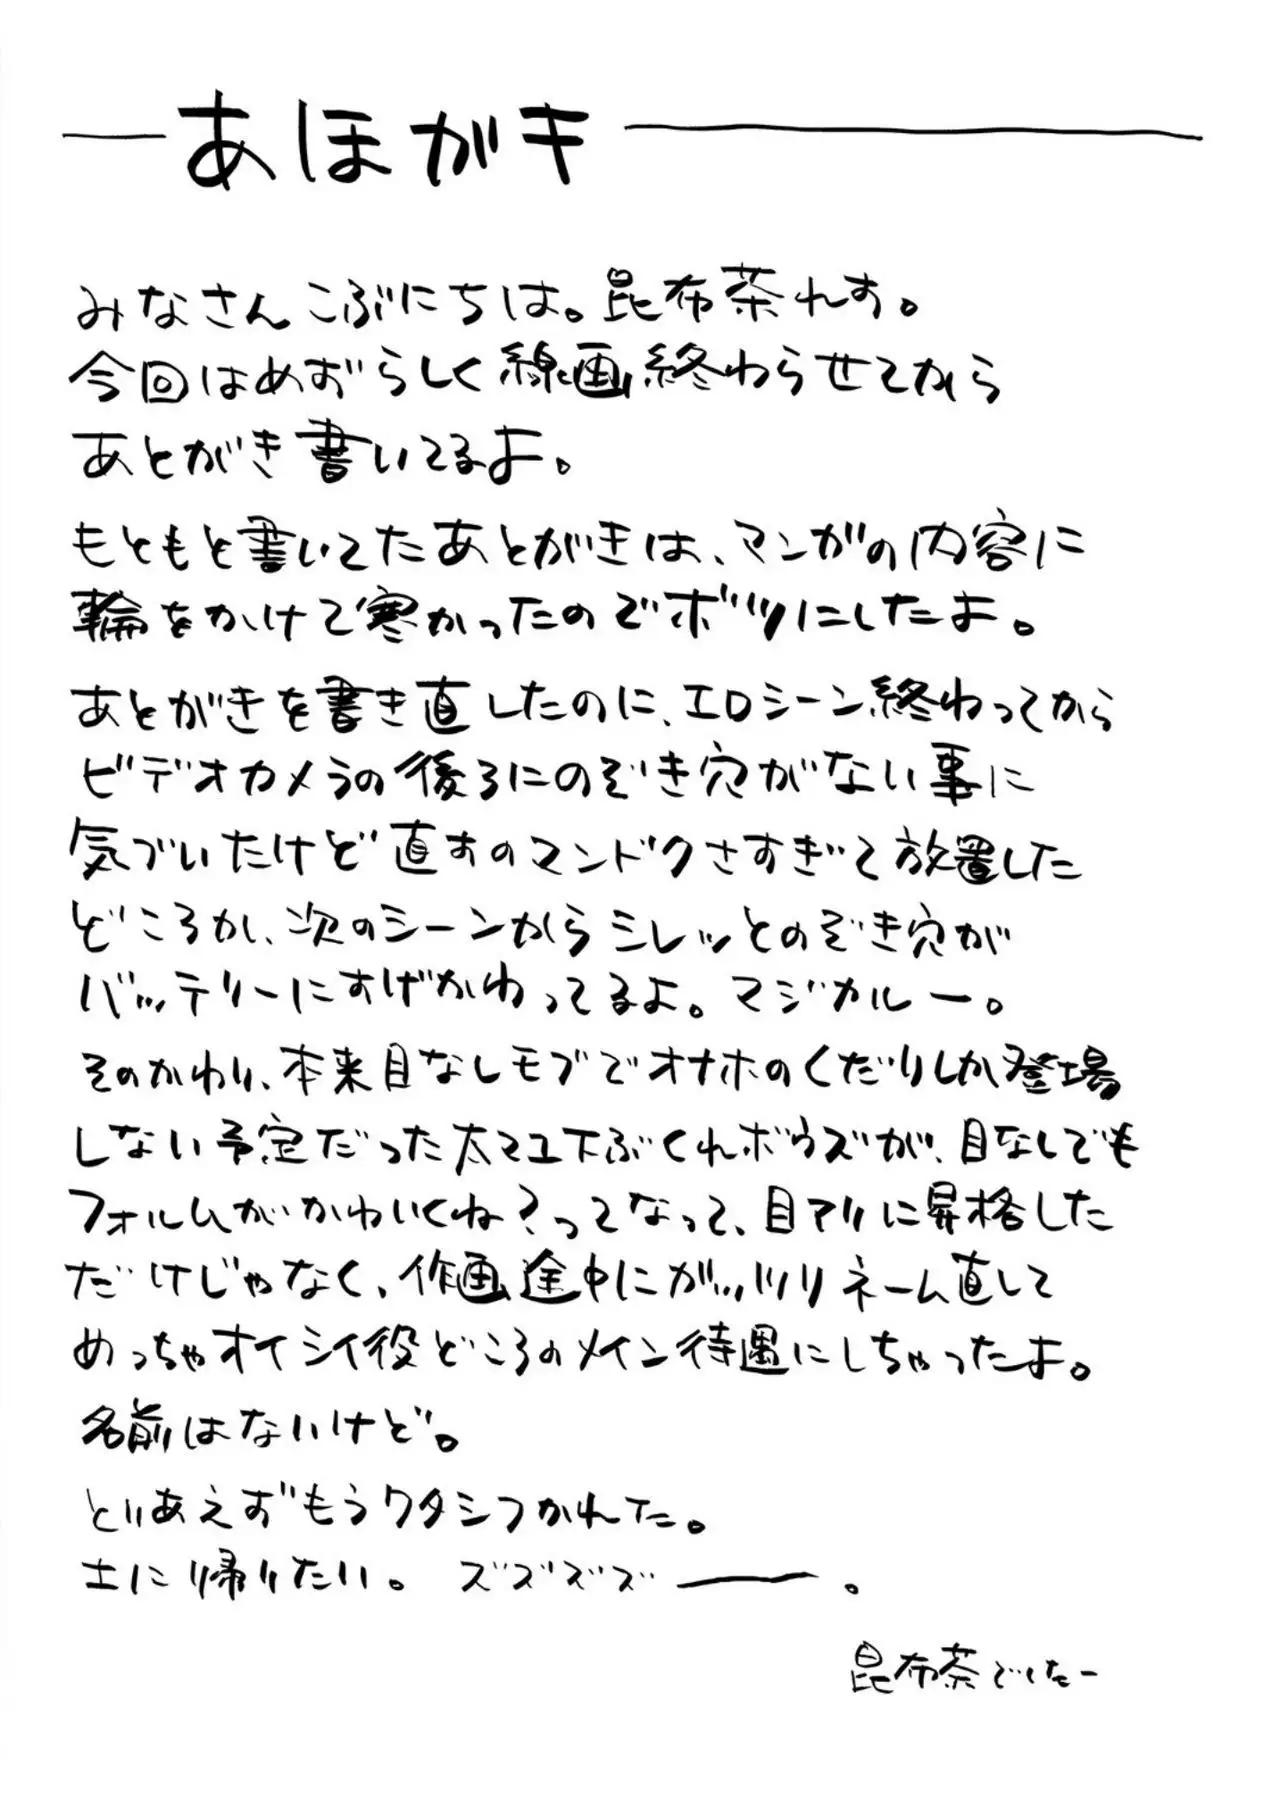 あほがき
みなさんこぶにちは。昆布茶れす。
今回はめずらしく線画終わらせてから
あとがき書いてるよ。
もともと書いてたあとがきは、マンガの内容に
輪をかけて寒かったのでボツにしたよ。
あとがきを書き直したのに、エロシーン終わってから
ビデオカメラの後ろにのぞき穴がない事に
気づいたけど直すのマンドクさすぎて放置した
どころか、次のシーンからシレッとのぞき穴が
バッテリーにすげかわってるよ。マジカルー。
そのかわり、本来目なしモブでオナホのくだりしか登場
しない予定だった太マユ下ぶくれボウズが、目なしでも
フォルムがかわいくね？ってなって、目アリに昇格した
だけじゃなく、作画途中にガッツリネーム直して
めっちゃオイシイ役どころのメイン待遇にしちゃったよ。
名前はないけど。
とりあえずもうワタシつかれた。
土に帰りたい。ズズズズ――。
昆布茶でしたー